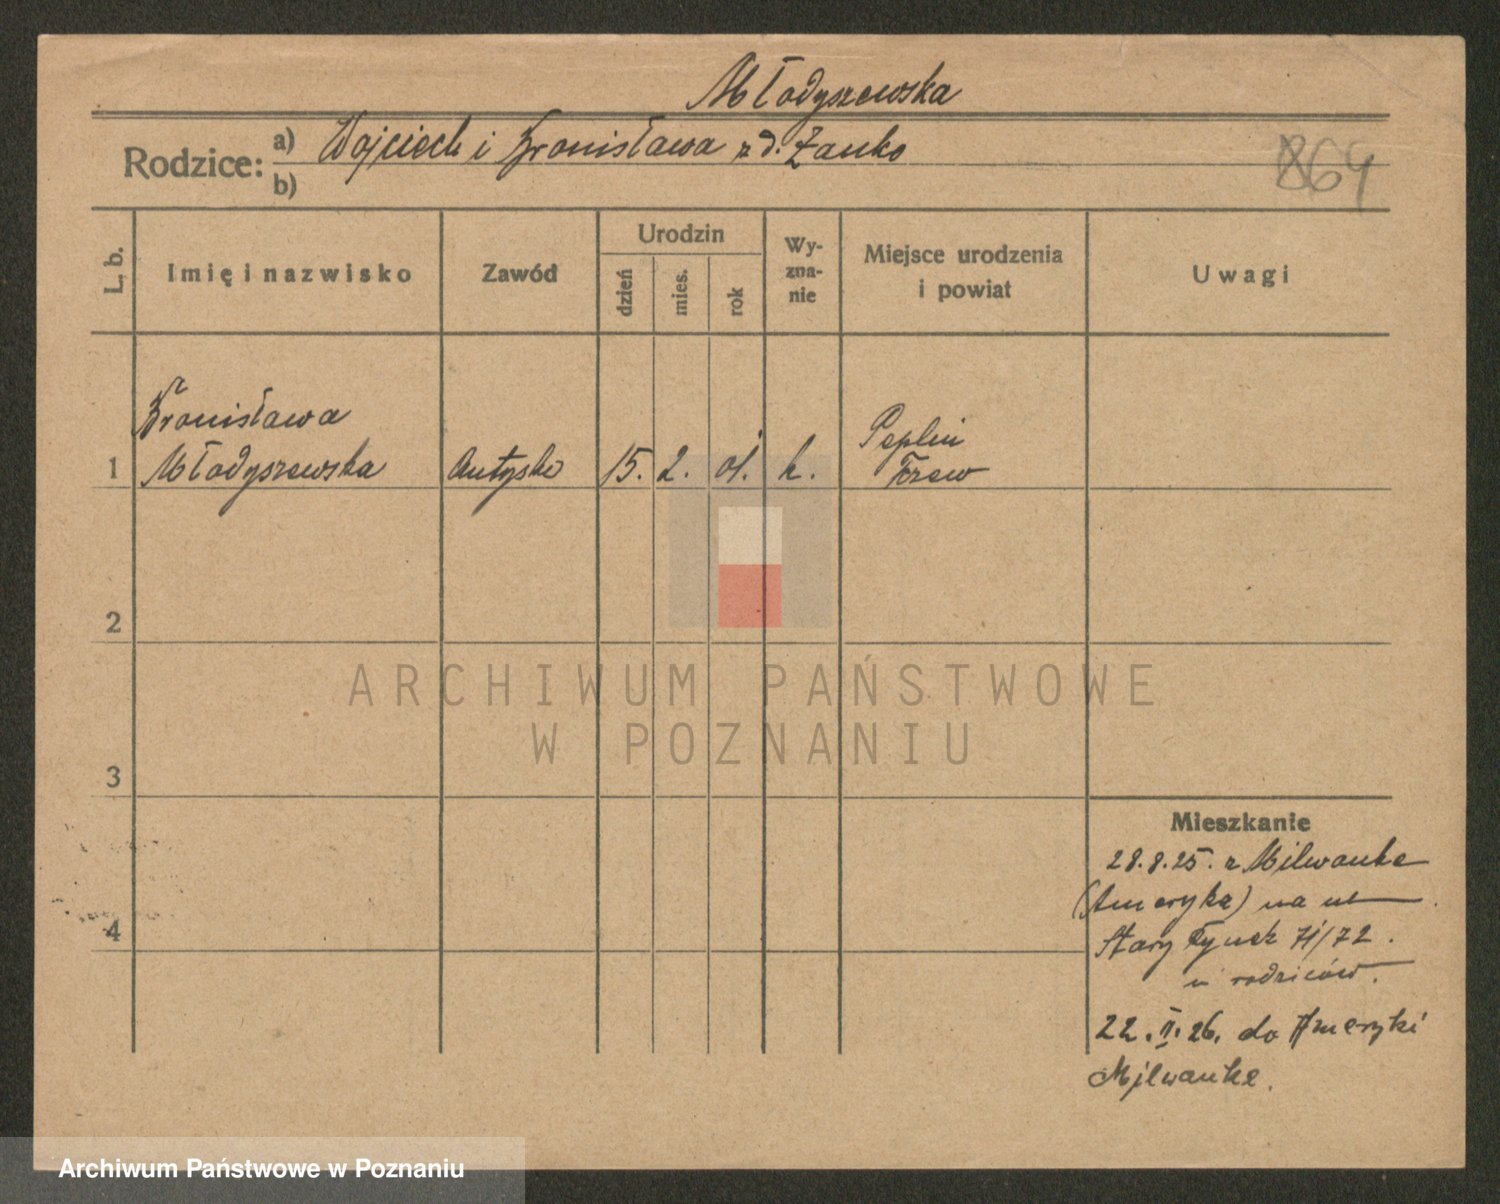 Młodyszewska
Rodzice: a) Wojciech i Bronisława z d. Żanko
b)
864
L. b.
Imię i nazwisko
Zawód
Urodzin
dzień
mies.
rok
Wy-
zna-
nie
Miejsce urodzenia
i powiat
Uwagi
Bronisława
1 Młodyszewska
15. 2. 01. k.
Peplin
Tczew
2
3
4
ARCHIWUM PAŃSTWOWE
W POZNANIU
Mieszkanie
28.8.25. z Milwauke
(Ameryka) na ul
Stary Rynek 71/72.
u rodziców.
22. II. 26. do Ameryki
Milwauke.
Archiwum Państwowe w Poznaniu